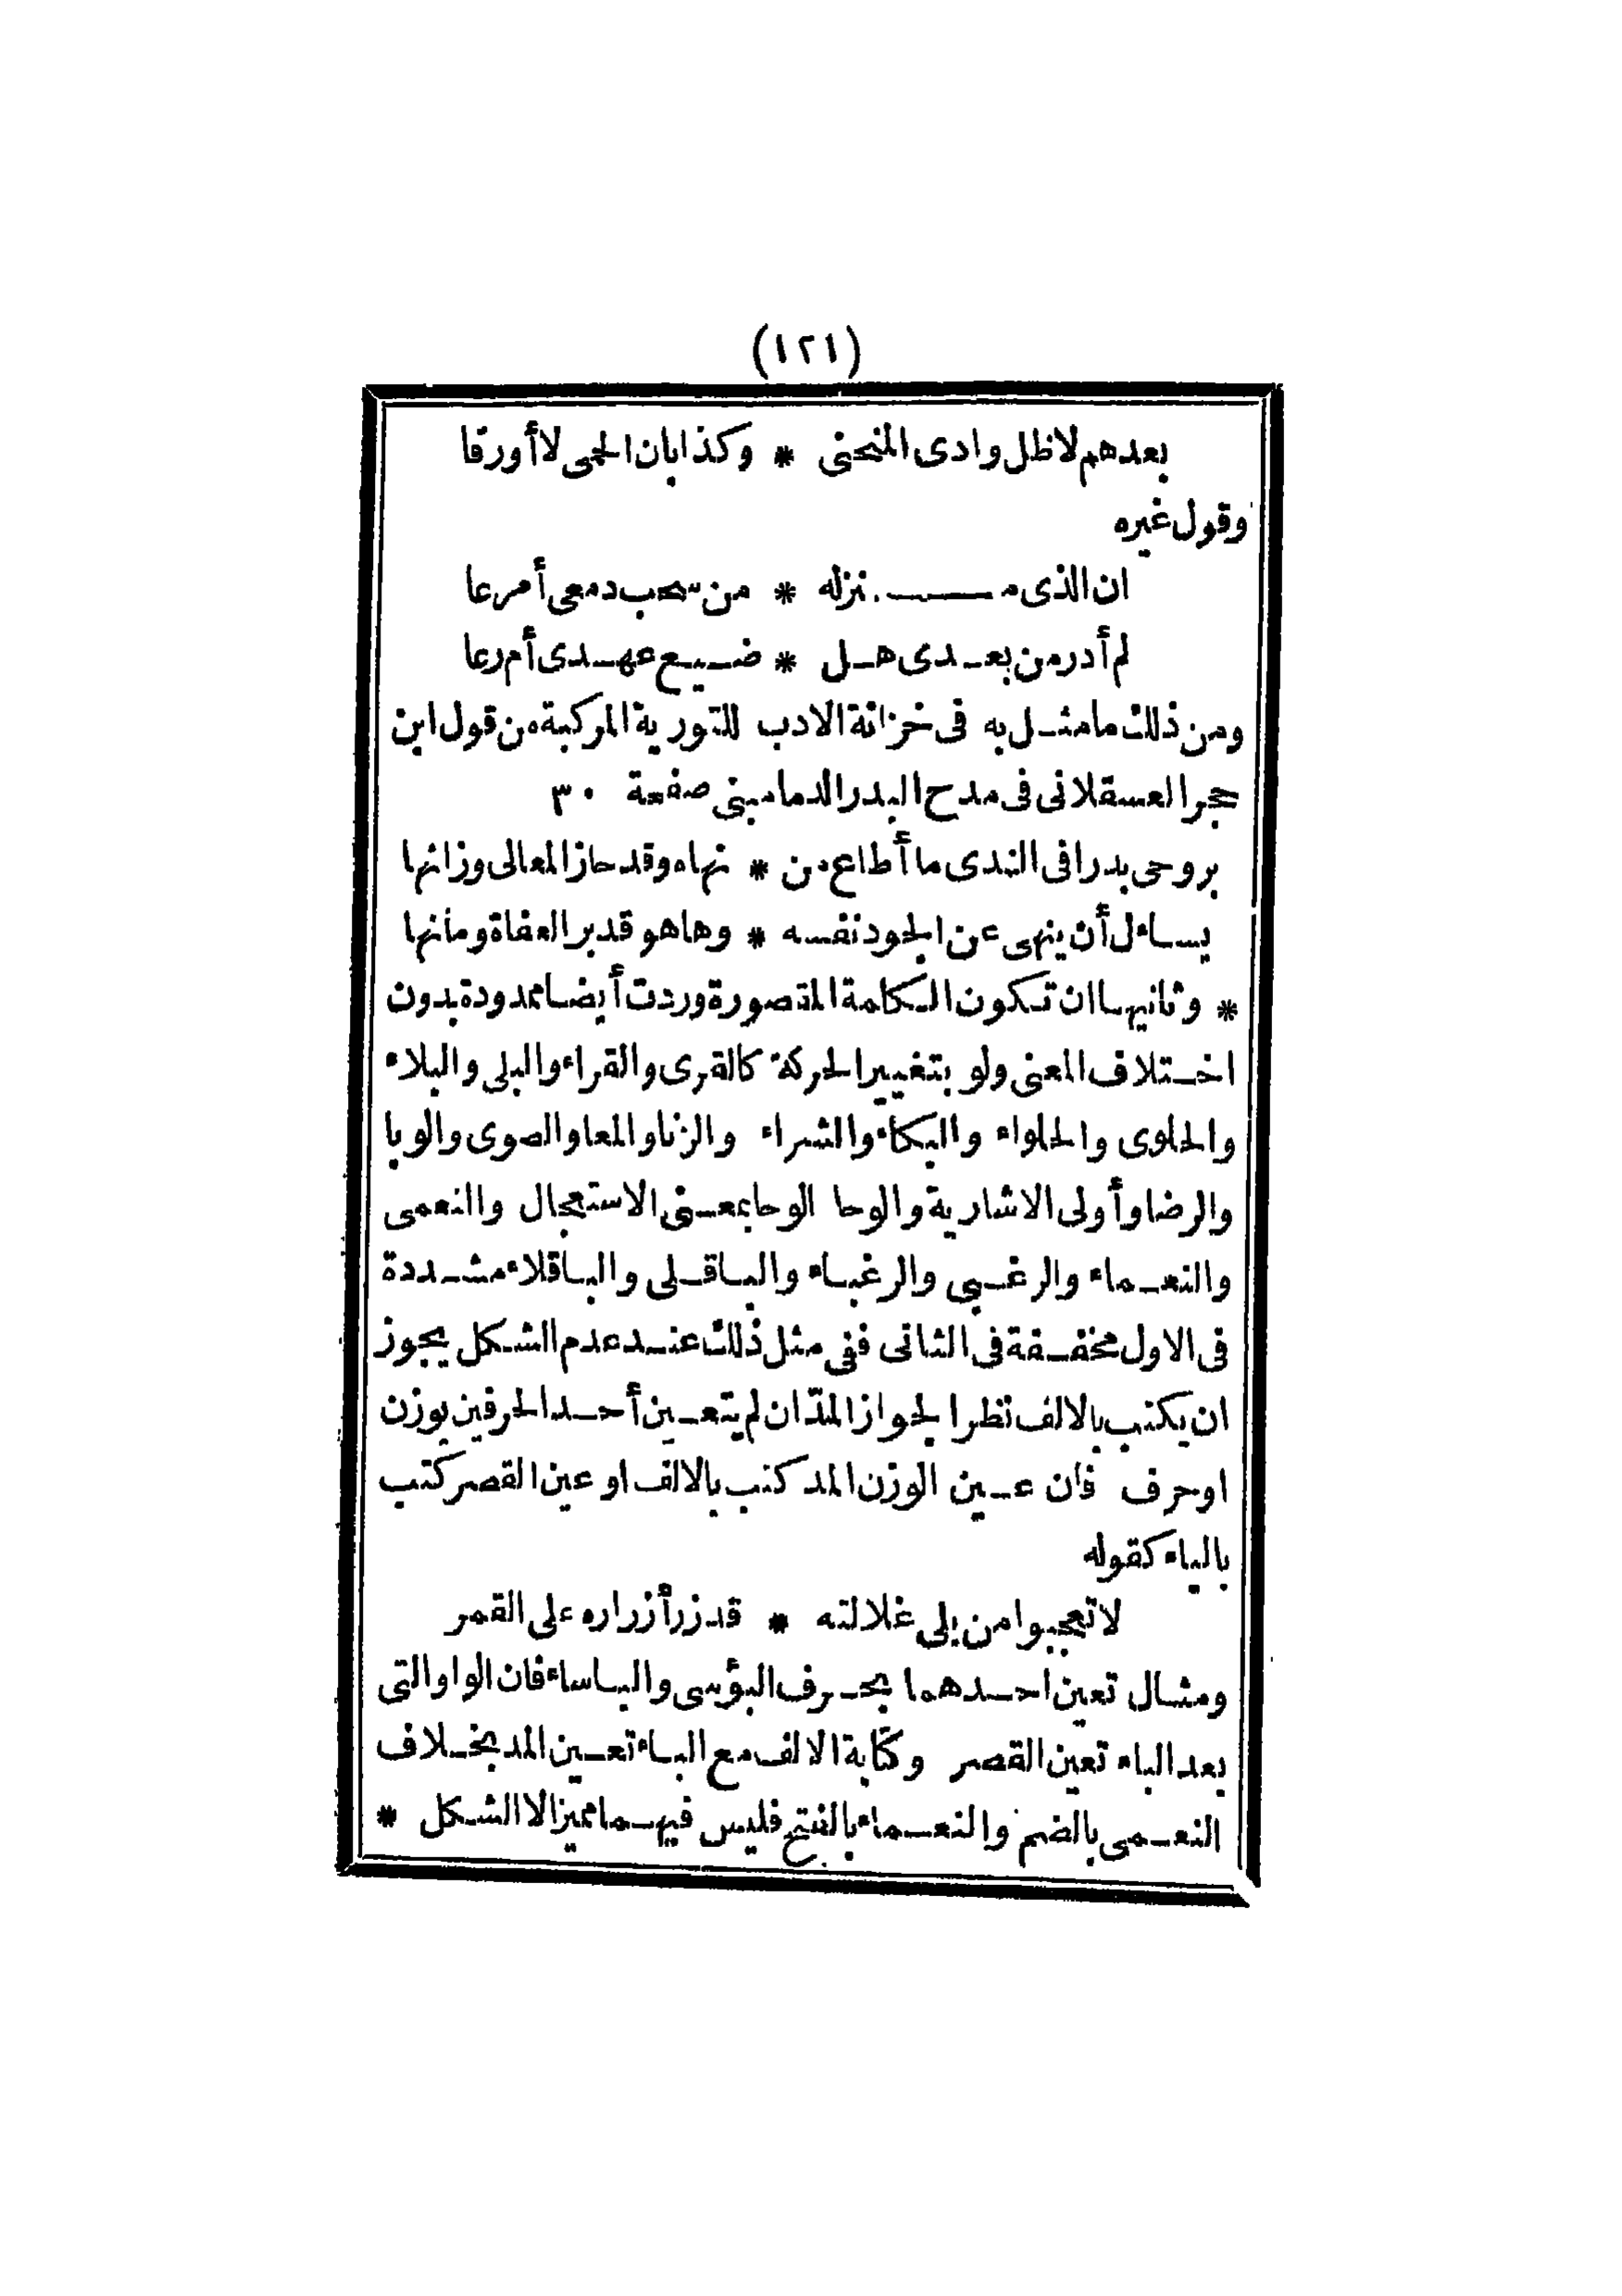 (١٢١)
بعدهم لا ظل وادى المنحنى * وكذا بان الحمى لا أورقا
وقول غيره
ان الذى منزله * من سحب دمعى أمرعا
لم أدر من بعدى هل * ضيع عهدى أم رعا
ومن ذلك ما مثل به فى خزانة الادب للتورية المركبة من قول ابن
حجر العسقلانى فى مدح البدر الدمامينى صفحة ٣٠
بروحى بدرا فى الندى ما أطاع من * نهاه وقد حاز المعالى وزانها
يسائل أن ينهى عن الجود نفسه * وها هو قد بر العفاة ومانها
* وثانيهما ان تكون الكلمة المقصورة وردت أيضا ممدودة بدون
اختلاف المعنى ولو بتغيير الحركة كالقرى والقراء والبلى والبلاء
والحلوى والحلواء والبكاء والشراء والزنا والمعا والصوى والوبا
والرضا وأولى الاشارية والوحا الوحا بمعنى الاستعجال والنعمى
والنعماء والرغبى والرغباء والباقلى والباقلاء مشددة
فى الاول مخففة فى الثانى ففى مثل ذلك عند عدم الشكل يجوز
ان يكتب بالالف نظرا لجواز المدّ ان لم يتعين أحد الحرفين بوزن
او حرف فان عين الوزن المد كتب بالالف او عين القصر كتب
بالياء كقوله
لا تعجبوا من بلى غلالته * قد زر أزراره على القمر
ومثال تعين احدهما بحرف البؤسى والباساء فان الواو التى
بعد الباء تعين القصر وكتابة الالف مع الباء تعين المد بخلاف
النعمى بالضم والنعماء بالفتح فليس فيهما مميز الا الشكل *